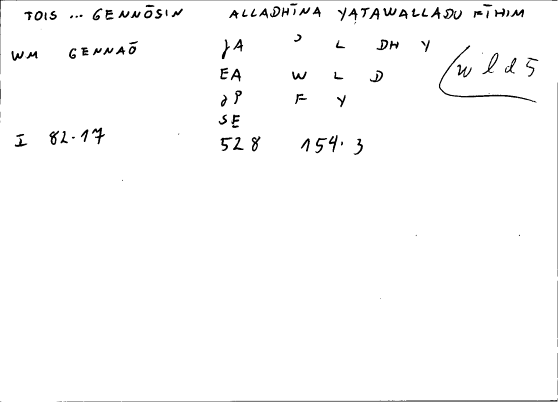 TOIS ... GENNŌSIN ALLADHĪNA YATAWALLADU FĪHIM
WM GENNAŌ JA ʾ L DH Y
EA W L D wld5
JP F Y
SE
I 82.17 528 154.3